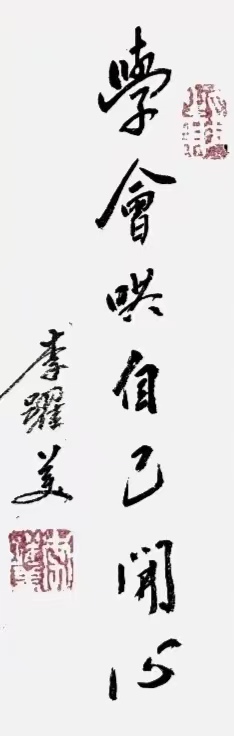 學會哄自己開心
李躍美